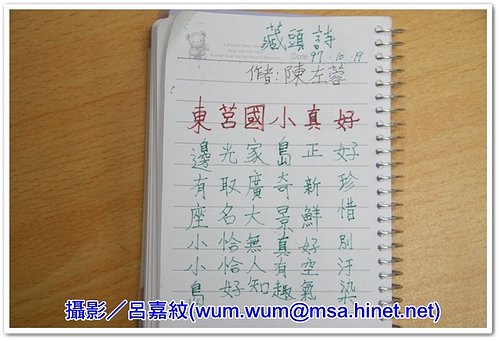 藏頭詩
Date 97.10.19
作者:陳左蓉
東邊有座小小島
莒光取名恰恰好
國家廣大無人知
小島奇景真有趣
真正新鮮好空氣
好好珍惜別汙染
攝影／呂嘉紋(wum.wum@msa.hinet.net)